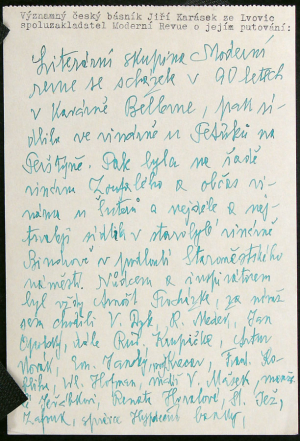 Významný český básník Jiří Karásek ze Lvovic
spoluzakladatel Moderní Revue o jejím putování:
Literární skupina Moderní
revue se scházela v 90 letech
v kavárně Bellevue, pak sí-
dlila ve vinárně u Petříků na
Perštýně. Pak byla na řadě
vinárna Zoufalého a občas vi-
nárna u Šutrů a nejdéle a nej-
trvaleji sídlila v starobylé vinárně
Binderově v průchodu Staroměstského
náměstí. Vůdcem a inspirátorem
byl vždy Arnošt Procházka, za nímž
sem chodili V. Dyk, R. Medek, Jan
Opolský, dále Rud. Krupička, Artur
Novák, Em. z Franc. Ko-
bliha, Vl. Hofman, malíř V. Mašek,
z Jeřábkovi, Renata
Zavřel, správce Hypoteční banky,